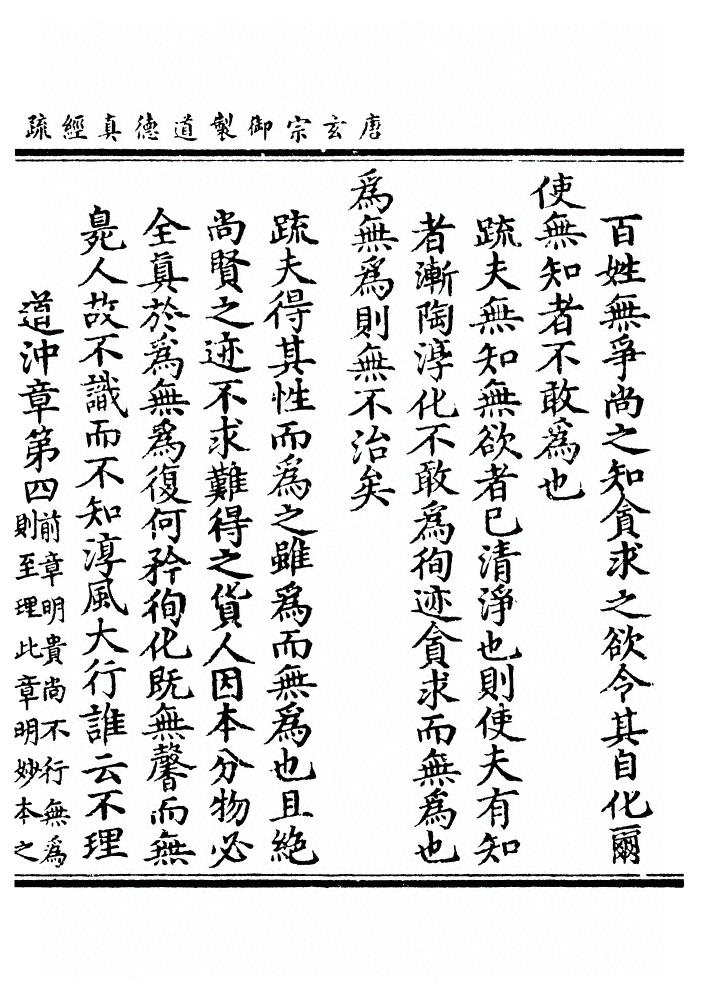 唐玄宗御製道德真經疏
百姓無爭尚之知貪求之欲令其自化爾
使無知者不敢爲也
疏夫無知無欲者已清淨也則使夫有知
者漸陶淳化不敢爲徇迹貪求而無爲也
爲無爲則無不治矣
疏夫得其性而爲之雖爲而無爲也且絕
尚賢之迹不求難得之貨人因本分物必
全真於爲無爲復何矜徇化既無馨而無
臭人故不識而不知淳風大行誰云不理
道沖章第四前章明貴尚不行無爲
則至理此章明妙本之